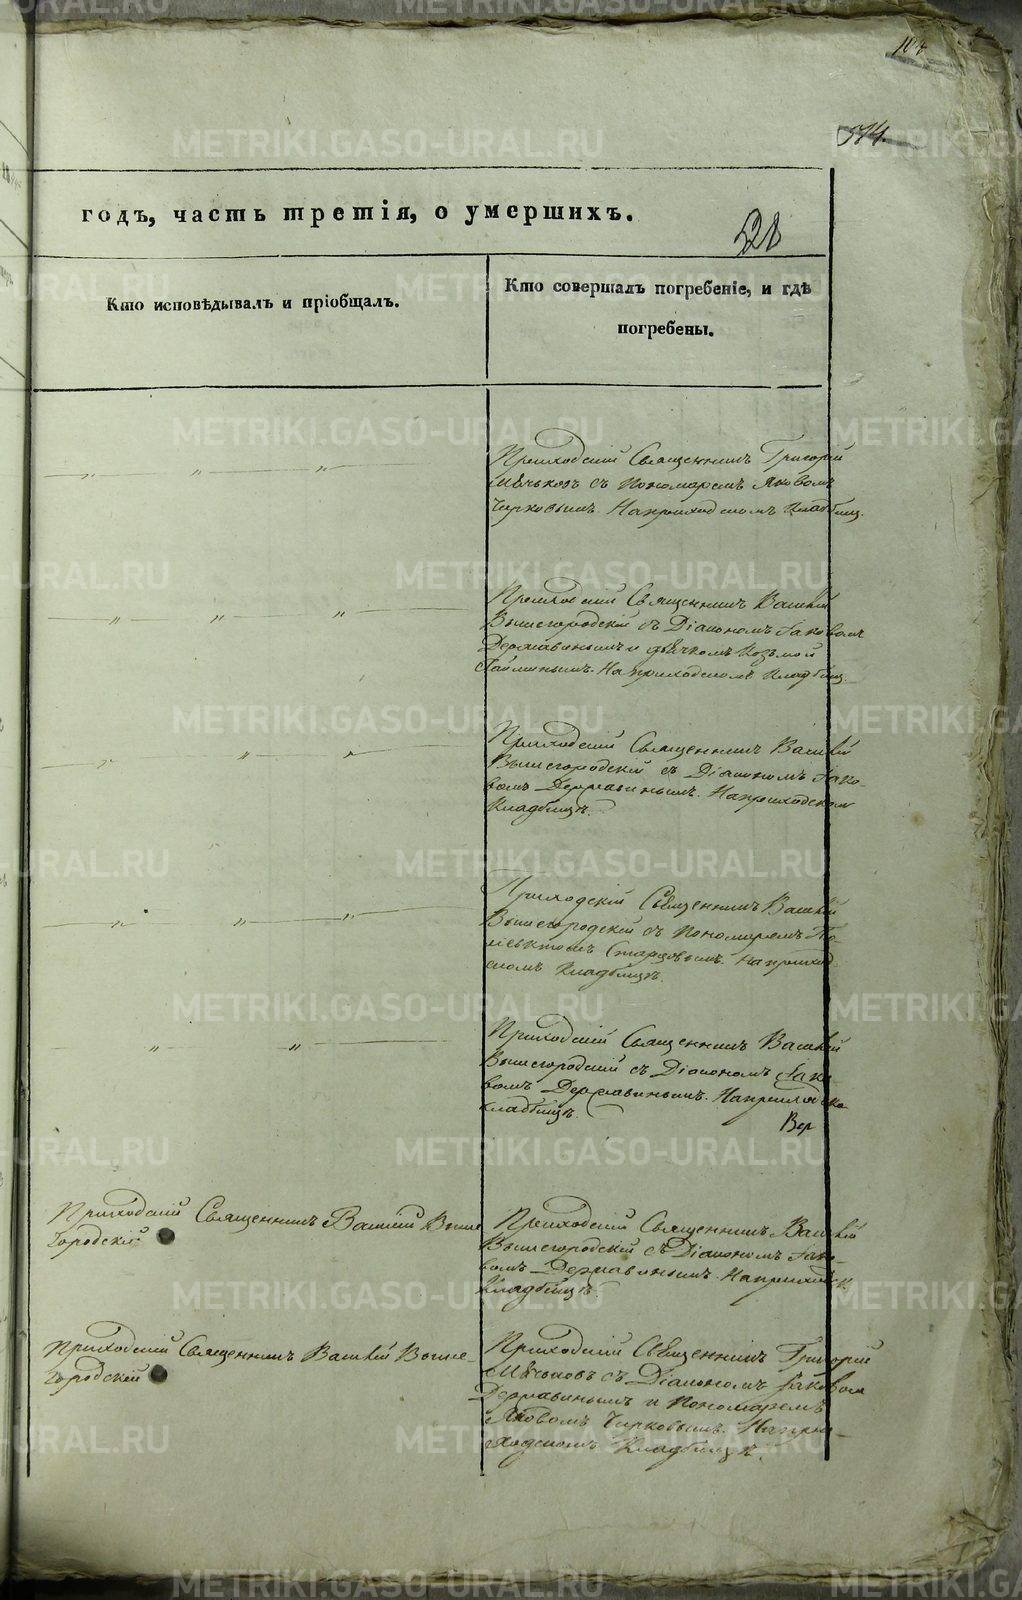 574.
годъ, часть третія, о умершихъ.
528
Кто исповѣдывалъ и пріобщалъ.
Кто совершалъ погребеніе, и гдѣ
погребены.
Приходскій Священникъ Григорій
съ Пономаремъ Яковомъ
Чирковымъ. На приходскомъ Кладбищ.
Приходскій Священникъ Василій
Вышегородскій съ Діакономъ Іаковомъ
Державинымъ и дьячкомъ Козьмой
На приходскомъ Кладбищ.
Приходскій Священникъ Василій
Вышегородскій съ Діакономъ Іако-
вомъ Державинымъ. На приходскомъ
Кладбищѣ.
Приходскій Священникъ Василій
Вышегородскій съ Пономаремъ По-
ліевктомъ Старцовымъ. На приход
скомъ Кладбищѣ.
Приходскій Священникъ Василій
Вышегородскій съ Діакономъ Іако-
вомъ Державинымъ. На приходско
кладбищѣ.
Вер
Приходскій Священникъ Василій Выше
Городскій
Приходскій Священникъ Василій
Вышегородскій съ Діакономъ Іако-
вомъ Державинымъ. На приходск
Кладбищѣ.
Приходскій Священникъ Василій Выше-
Городскій
Приходскій Священникъ Григорій
съ Діакономъ Іаковом
Державинымъ и Пономаремъ
Яковомъ Чирковымъ. На при-
ходскомъ Кладбищѣ.
METRIKI.GASO-URAL.RU